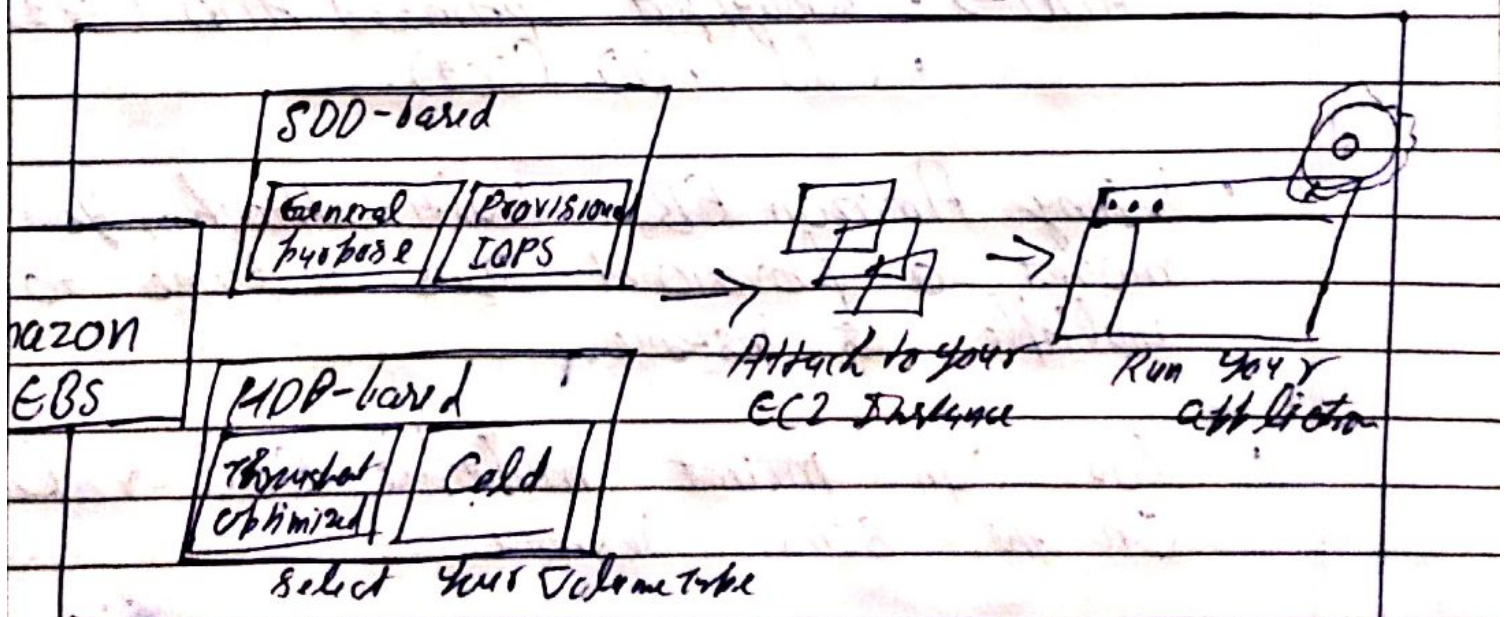 SDD-based
General
purpose
Provisioned
IOPS
mazon
EBS
HDD-based
optimized
Cold
Select your Volume Type
Attach to your
EC2 Instance
Run your
application